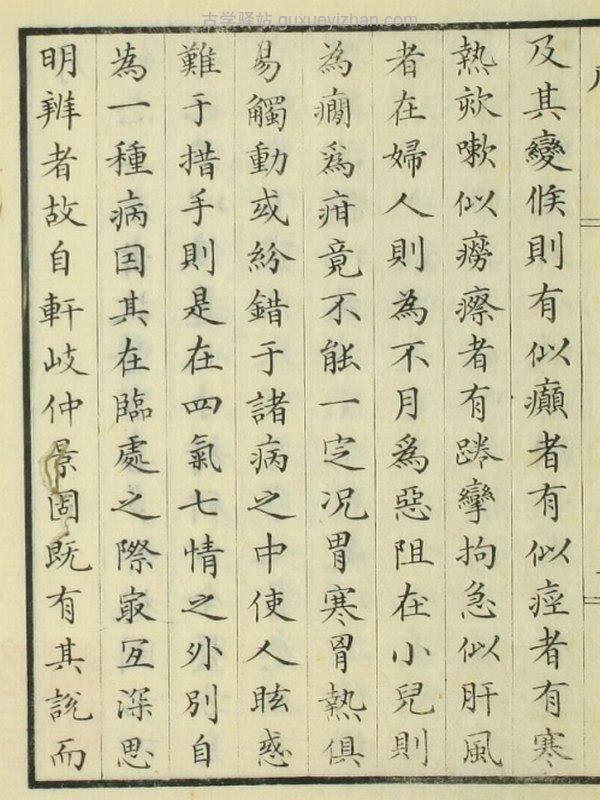 古学驿站 guxueyizhan.com
及其變候則有似癲者有似痙者有寒
熱欬嗽似癆瘵者有踡攣拘急似肝風
者在婦人則為不月爲惡阻在小兒則
為癇爲疳竟不能一定况胃寒胃熱俱
易觸動或紛錯于諸病之中使人眩惑
難于措手則是在四氣七情之外別自
為一種病囙其在臨處之際㝡宐深思
明辨者故自軒岐仲景固既有其說而